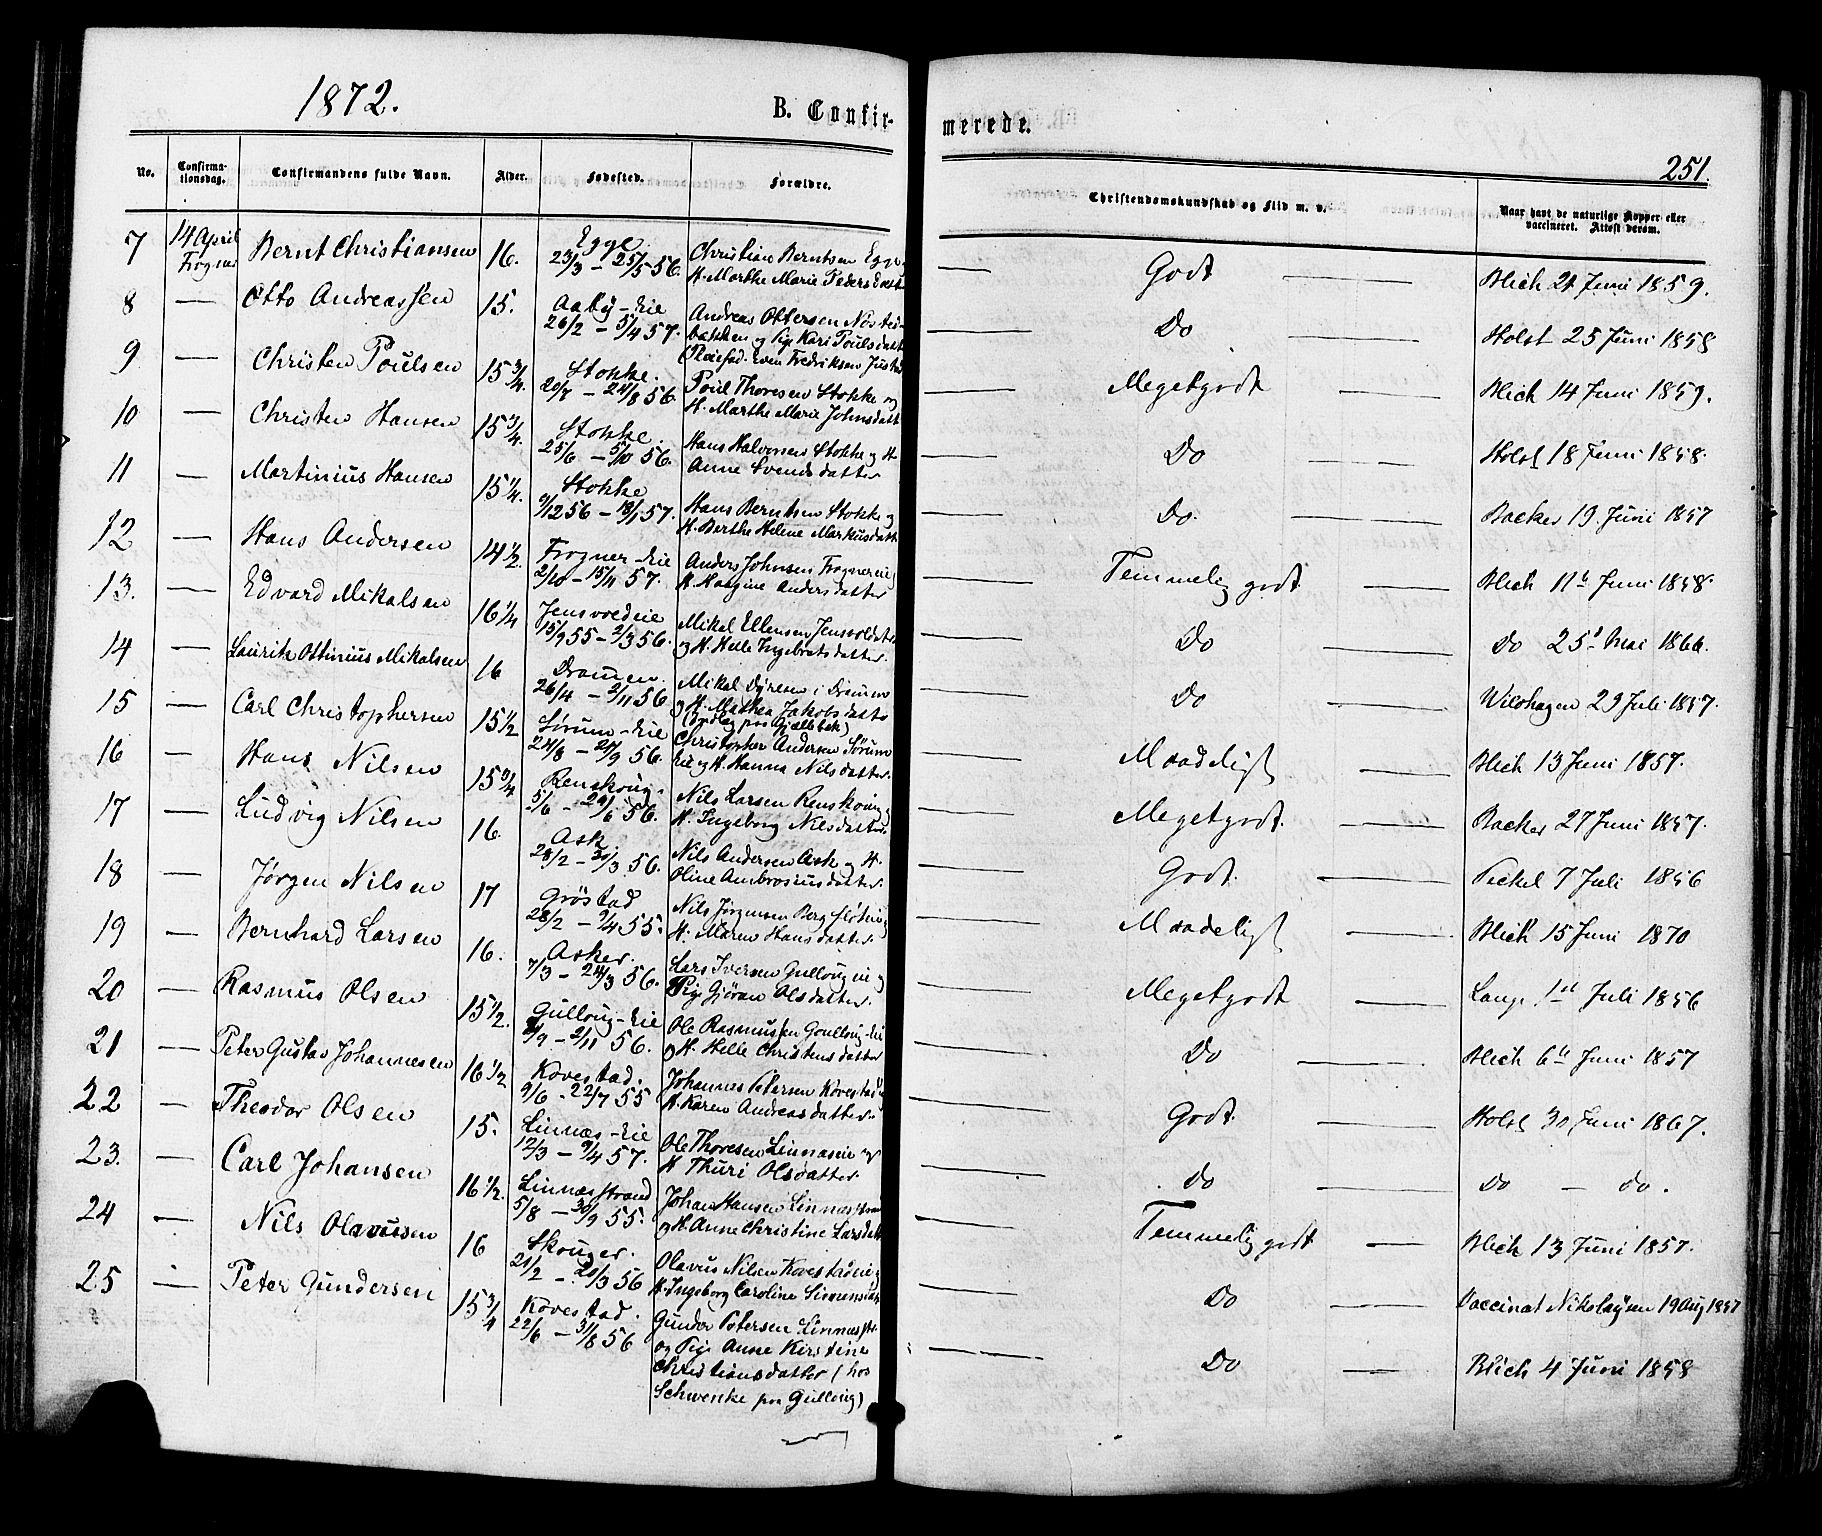 1872.
B. Confir-
merede.
251.
No.
Confirma-
tionsdag.
Confirmandens fulde Navn.
Alder.
Fødested.
Forældre.
Christendomskundskab og Flid m. v.
Naar havt de naturlige Kopper eller
vaccineret. Attest derom.
7 14 April Bernt Christiansen 16. Egge. Christian Berntsen Egge
Frogner 23/3 – 25/5 56. H. Marthe Marie Pedersdatt
Godt Blich 21 Juni 1859.
8 — Otto Andreassen 15. Aaby-Eie Andreas Ottersen Nøsted-
26/2 – 5/4 57. bakken og Pige Kari Poulsdatt
(Pleiefad. Even Fredriksen Justad
Do Holst 25 Juni 1858
9 — Christen Poulsen 15 3/4. Stokke. Poul Thoresen Stokke og
20/7 – 24/8 56 H. Marthe Marie Johnsdatt
Megetgodt Blich 14 Juni 1859.
10 — Christen Hansen 15 3/4. Stokke. Hans Halvorsen Stokke og H
25/6 – 5/10 56. Anne Svendsdatter
Do Holst 18 Juni 1858.
11 — Martinius Hansen 15 1/4. Stokke Hans Berntsen Stokke og
9/12 56 – 18/1 57. H. Berthe Helene Markusdatt
Do. Backer 19 Juni 1857
12 — Hans Andersen 14 1/2. Frogner-Eie Anders Johnsen Frognereie
2/10 – 15/11 57. H. Haagine Andersdatter
Temmelig godt Blich 11te Juni 1858.
13. — Edvard Mikalsen 16 1/4 Jensvoldeie Mikal Ellensen Jensvoldeie
15/9 55 – 2/3 56. og H. Helle Ingebretsdatter.
Do Do 25 Mai 1866.
14 — Laurits Ottinius Mikalsen 16 Dramen. Mikal Dyresen i Dramen
26/4 – 2/11 56 og H. Mathea Jakobsdatte
(Oplag paa Gjellebek)
Do Wilshagen 29 Juli 1857.
15 — Carl Christophersen 15 1/2 Sørum-Eie Christopher Andersen Sørum
24/8 – 21/9 56. Eie og H. Hanna Nilsdatter.
Maadeligt Blich 13 Juni 1857.
16 — Hans Nilsen 15 3/4 Renskoug. Nils Larsen Renskoug og
5/6 – 29/6 56. H. Ingeborg Nilsdatter.
Megetgodt. Backer 27 Juni 1857.
17 — Ludvig Nilsen 16. Ask. Nils Andersen Ask og H.
28/2 – 30/3 56. Oline Ambrosiusdatter.
Godt. Peckel 7 Juli 1856
18 — Jørgen Nilsen 17 Grøstad Nils Jørgensen Berg
28/2 – 9/4 55. H. Maren Hansdatter.
Maadeligt Blich 15 Juni 1870
19 — Bernhard Larsen 16. Asker. Lars Iversen Gulloug eie og
7/3 – 24/3 56. Pige Gjøran Olsdatter.
Megetgodt Lange 1st Juli 1856
20 — Rasmus Olsen 15 1/2. Gulloug-Eie Ole Rasmussen Goulloug-Eie
2/9 – 2/11 56. og H. Helle Christensdatter
Do Blich 6te Juni 1857
21 — Peter Gustav Johannesen 16 1/2 Kovestad. Johannes Petersen Kovestad
9/6 – 22/7 55 H. Karen Andreasdatter.
Godt. Holst 30 Juni 1867.
22 — Theodor Olsen 15. Linnæs-Eie Ole Thoresen Linnæseie og
12/3 – 9/4 57. H. Thuri Olsdatter.
Do Do – do.
23. — Carl Johansen 16 1/2. Linnæsstrand Johan Hansen Linnæsstrand
5/8 – 30/9 55. og H. Anne Christine Larsdatt
Temmelig godt Blich 13 Juni 1857.
24 — Nils Olavusen 16 Skouger. Olavus Nilsen Kovestadeie og
21/2 – 20/3 56 H. Ingeborg Caroline Simensdat
Do Vaccinat Nikolaysen 19 Aug 1857
25 — Peter Gundersen 15 3/4 Kovestad. Gunder Petersen Linnæsstr.
22/6 – 31/8 56 og Pige Anne Kirstine
Christiansdatter (hos
Schwenke paa Gulloug)
Do Blich 4 Juni 1858